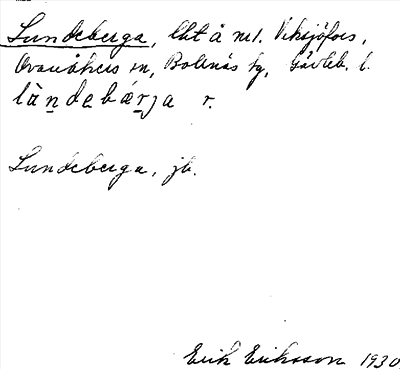 Lundeberga, lht å nr1. Viksjöfors,
Ovanåkers sn, Bollnäs tg, Gävleb. l.
làndebárja r.
Lundeberga, jb.
Erik Eriksson 1930.